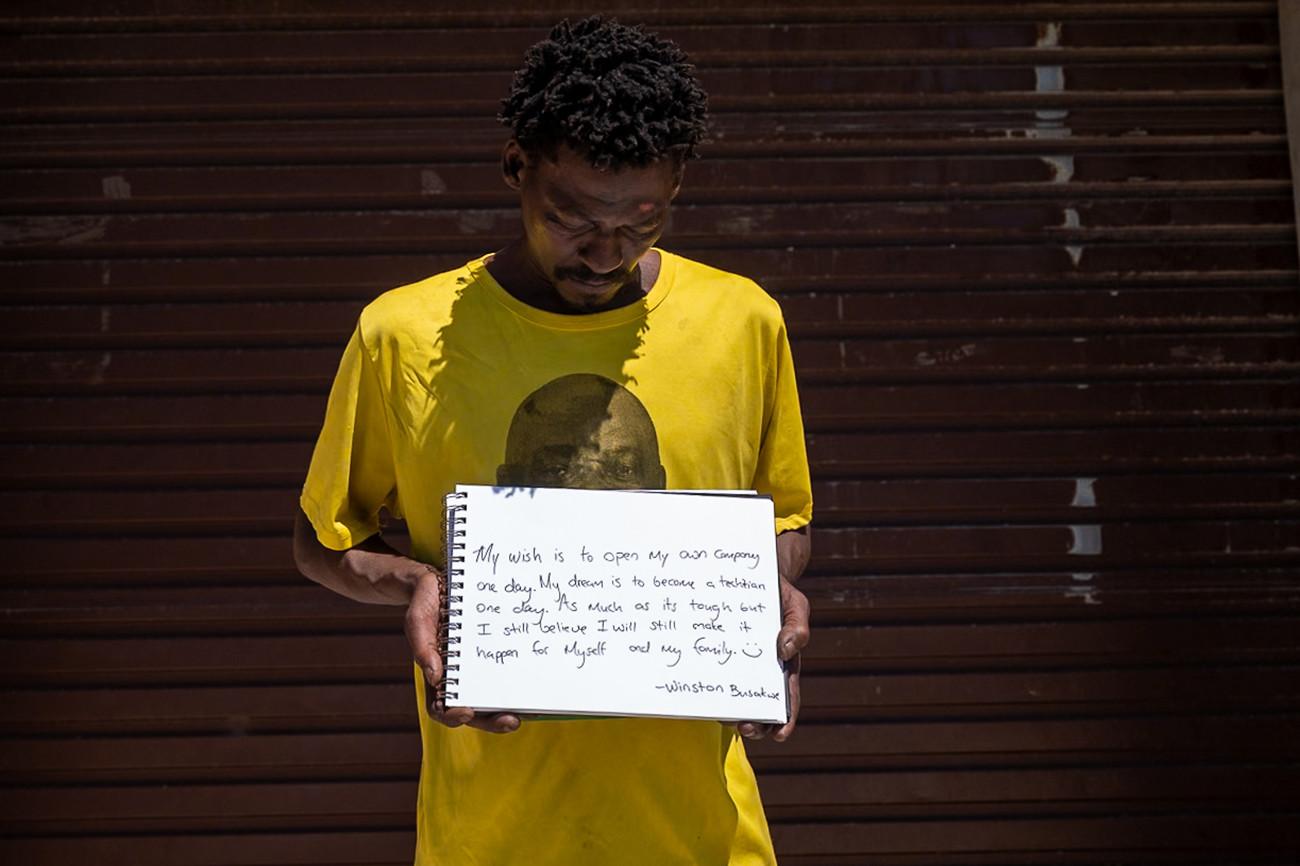 My wish is to open my own company
one day. My dream is to become a techtian
one day. As much as its tough but
I still believe I will still make it
happen for myself and my family. :)
-Winston Busakwe